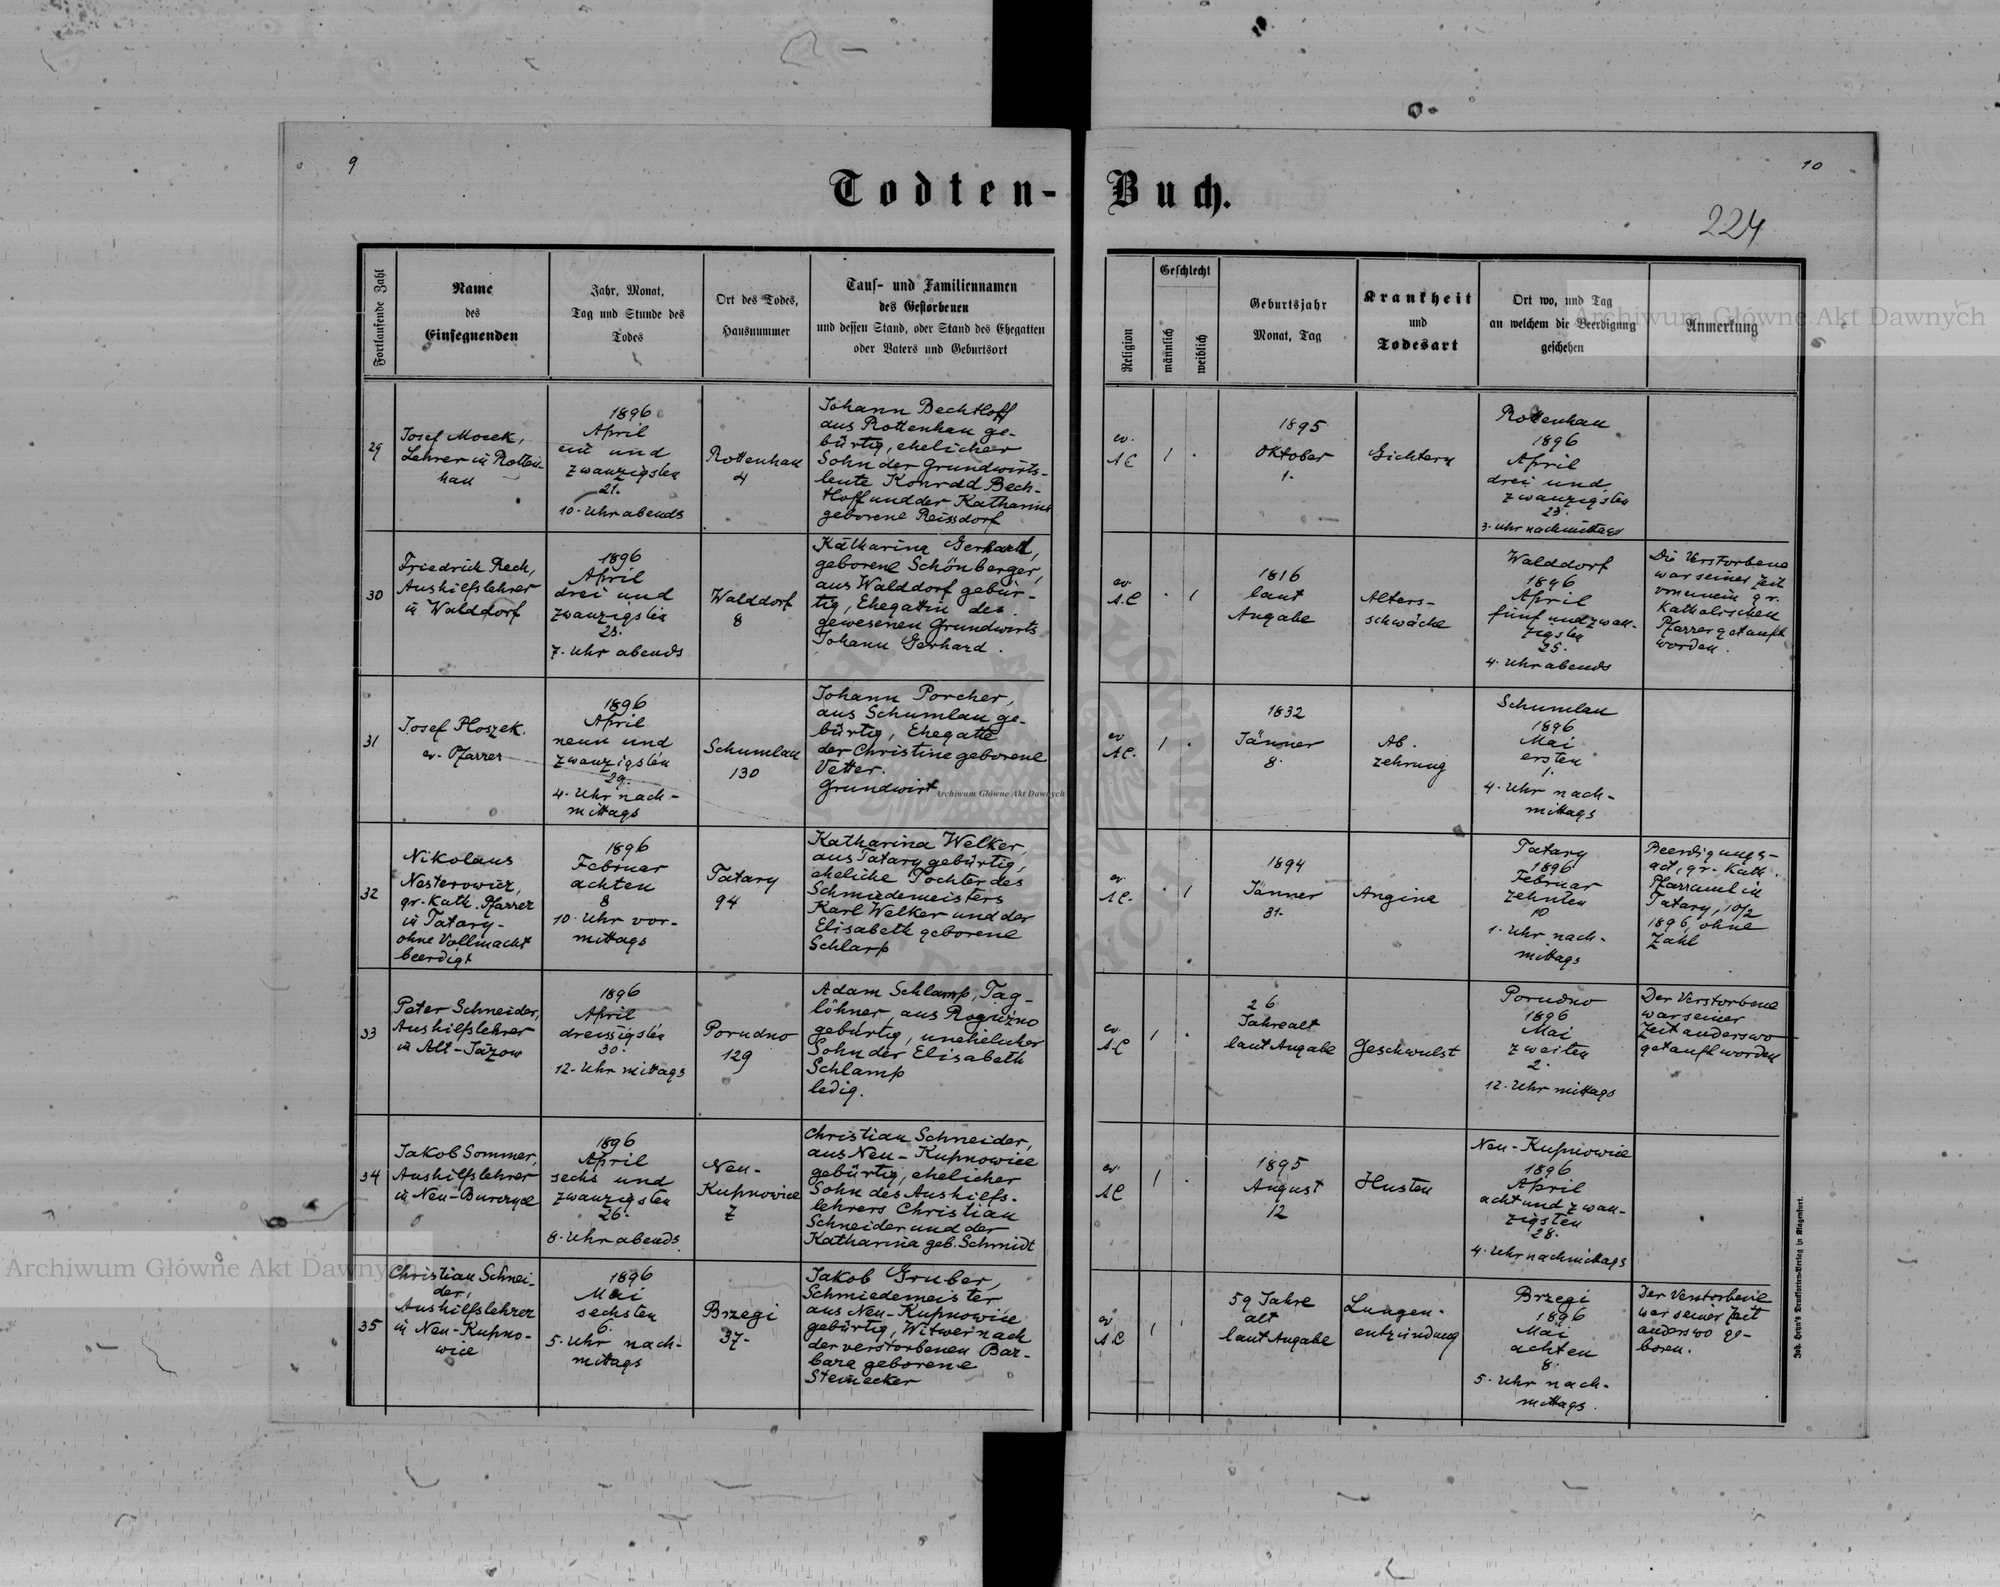 9
10
Todten-Buch.
224
Fortlaufende Zahl
Name
des
Einsegnenden
Jahr, Monat,
Tag und Stunde des
Todes
Ort des Todes,
Hausnummer
Tauf- und Familiennamen
des Gestorbenen
und dessen Stand, oder Stand des Ehegatten
oder Vaters und Geburtsort
Religion
Geschlecht
männlich
weiblich
Geburtsjahr
Monat, Tag
Krankheit
und
Todesart
Ort wo, und Tag
an welchem die Beerdigung
geschehen
Anmerkung
29
Josef Mocek,
Lehrer in Rotten-
hau
1896
April
ein und
zwanzigsten
21.
10. Uhr abends
Rottenhau
4
Johann Bechtloff
aus Rottenhau ge-
bürtig, ehelicher
Sohn der Grundwirts-
leute Konrad Bech-
tloff und der Katharina
geborene Reissdorf
ev.
A C
1895
Oktober
1.
Gichtern
Rottenhau
1896
April
drei und
zwanzigsten
23.
3. Uhr nachmittags
30
Friedrich Rech,
Aushilfslehrer
in Walddorf
1896
April
drei und
zwanzigsten
23.
7. Uhr abends
Walddorf
8
Katharina Gerhard,
geborene Schönberger,
aus Walddorf gebür-
tig, Ehegattin des
gewesenen Grundwirts
Johann Gerhard.
ev.
A.C
1816
laut
Angabe
Alters-
schwäche
Walddorf
1896
April
fünf und zwan-
zigsten
25.
4. Uhr abends
Die Verstorbene
war seiner Zeit
von einem gr.
Katholischen
Pfarrer getauft
worden.
31
Josef Ploszek.
ev. Pfarrer
1896
April
neun und
zwanzigsten
29.
4. Uhr nach-
mittags
Schumlau
130
Johann Porcher,
aus Schumlau ge-
bürtig, Ehegatte
der Christine geborene
Vetter.
Grundwirt
ev
A.C.
1832
Jänner
8.
Ab-
zehrung
Schumlau
1896
Mai
ersten
1.
4. Uhr nach-
mittags
32
Nikolaus
Nesterowicz,
gr. Kath. Pfarrer
in Tatary-
ohne Vollmacht
beerdigt
1896
Februar
achten
8
10. Uhr vor-
mittags
Tatary
94
Katharina Welker,
aus Tatary gebürtig,
eheliche Tochter des
Schmiedemeisters
Karl Welker und der
Elisabeth geborene
Schlarp
ev.
A C.
1894
Jänner
31.
Angine
Tatary
1896
Februar
zehnten
10
1. Uhr nach-
mittags
Beerdigungs-
act, gr. Kath.
Pfarramt in
Tatary, 10/2
1896, ohne
Zahl
33
Peter Schneider,
Aushilfslehrer
in Alt-Jazow
1896
April
dreissigsten
30.
12. Uhr mittags
Porudno
129
Adam Schlamp, Tag-
löhner, aus Rogużno
gebürtig, unehelicher
Sohn der Elisabeth
Schlamp
ledig.
ev.
A.C
26
Jahre alt
laut Angabe
Geschwulst
Porudno
1896
Mai
zweiten
2.
12. Uhr mittags
Der Verstorbene
war seiner
Zeit anderswo
getauft worden
34
Jakob Sommer,
Aushilfslehrer
in Neu-Burczyce
1896
April
sechs und
zwanzigsten
26.
8. Uhr abends
Neu-
Kupnowice
7
Christian Schneider,
aus Neu-Kupnowice
gebürtig, ehelicher
Sohn des Aushilfs-
lehrers Christian
Schneider und der
Katharina geb. Schmidt
ev.
A C
1895
August
12
Husten
Neu-Kupnowice
1896
April
acht und zwan-
zigsten
28.
4. Uhr nachmittags
35
Christian Schnei-
der,
Aushilfslehrer
in Neu-Kupno-
wice
1896
Mai
sechsten
6.
5. Uhr nach-
mittags
Brzegi
37-
Jakob Gruber,
Schmiedemeister
aus Neu-Kupnowice
gebürtig, Witwer nach
der verstorbenen Bar-
bara geborene
Steinecker
ev
A C
59 Jahre
alt
laut Angabe
Lungen-
entzündung
Brzegi
1896
Mai
achten
8.
5. Uhr nach-
mittags.
Der Verstorbene
war seiner Zeit
anderswo ge-
boren.
Joh. Leon's Drucksorten-Verlag in Klagenfurt.
Archiwum Główne Akt Dawnych
Archiwum Główne Akt Dawnych
Archiwum Główne Akt Dawnych